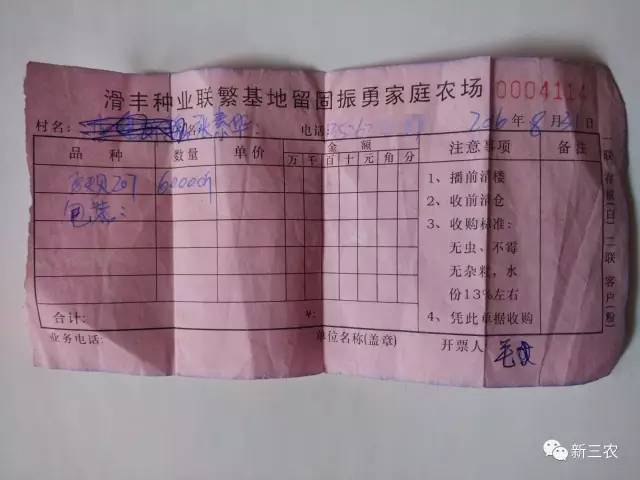 滑丰种业联繁基地留固振勇家庭农场 0004114
村名: 名 电话: 2016年8月31日
品种 数量 单价 金额 注意事项 备注
万 千 百 十 元 角 分
207 6000 1、播前清楼
包装: 2、收前清仓
3、收购标准:
无虫、不霉
无杂粒,水
份13%左右
合计: ¥: 4、凭此单据收购
业务电话: 单位名称(盖章) 开票人:
一联存根(白) 二联客户(粉)
新三农